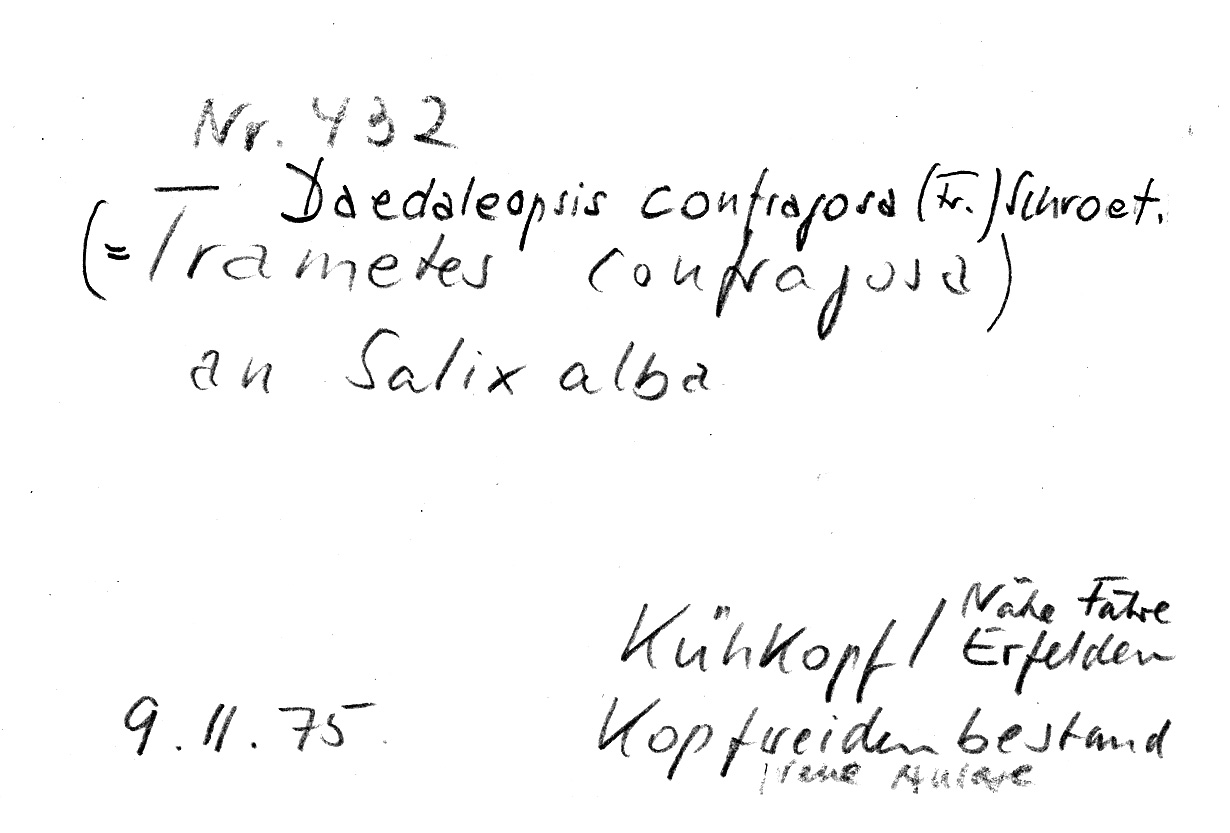 Nr. 432
Daedaleopsis confragosa (Fr.) Schroet.
(= Trametes confragosa)
an Salix alba
Kühkopf / Nähe Fähre
Erfelden
9.11.75 Kopfweidenbestand